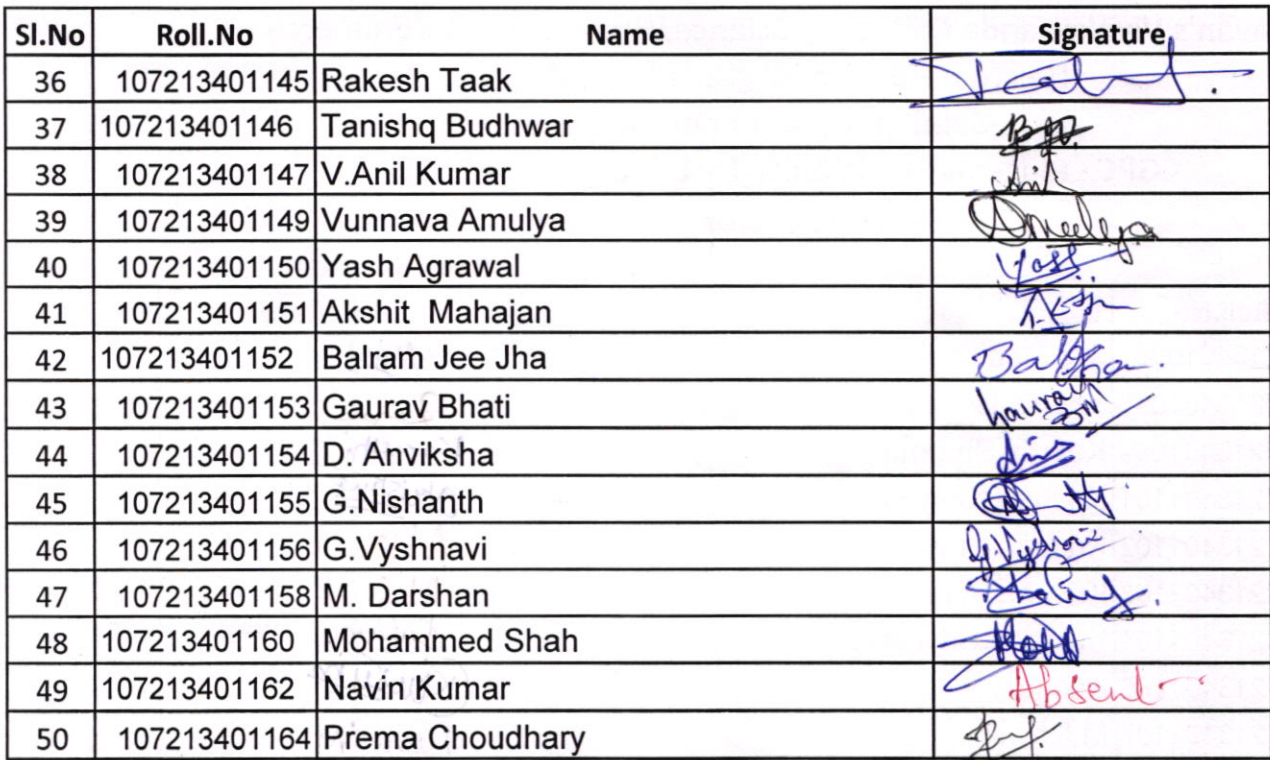 Sl.No Roll.No Name Signature
36 107213401145 Rakesh Taak
37 107213401146 Tanishq Budhwar
38 107213401147 V.Anil Kumar Anil
39 107213401149 Vunnava Amulya Amulya
40 107213401150 Yash Agrawal Yash
41 107213401151 Akshit Mahajan
42 107213401152 Balram Jee Jha
43 107213401153 Gaurav Bhati Gaurav
44 107213401154 D. Anviksha
45 107213401155 G.Nishanth
46 107213401156 G.Vyshnavi G.Vyshnavi
47 107213401158 M. Darshan
48 107213401160 Mohammed Shah Mohd
49 107213401162 Navin Kumar Absent
50 107213401164 Prema Choudhary